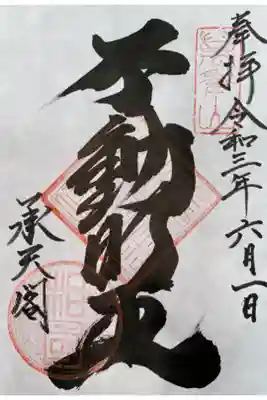 奉拝 令和三年六月一日
不動明王
承天閣